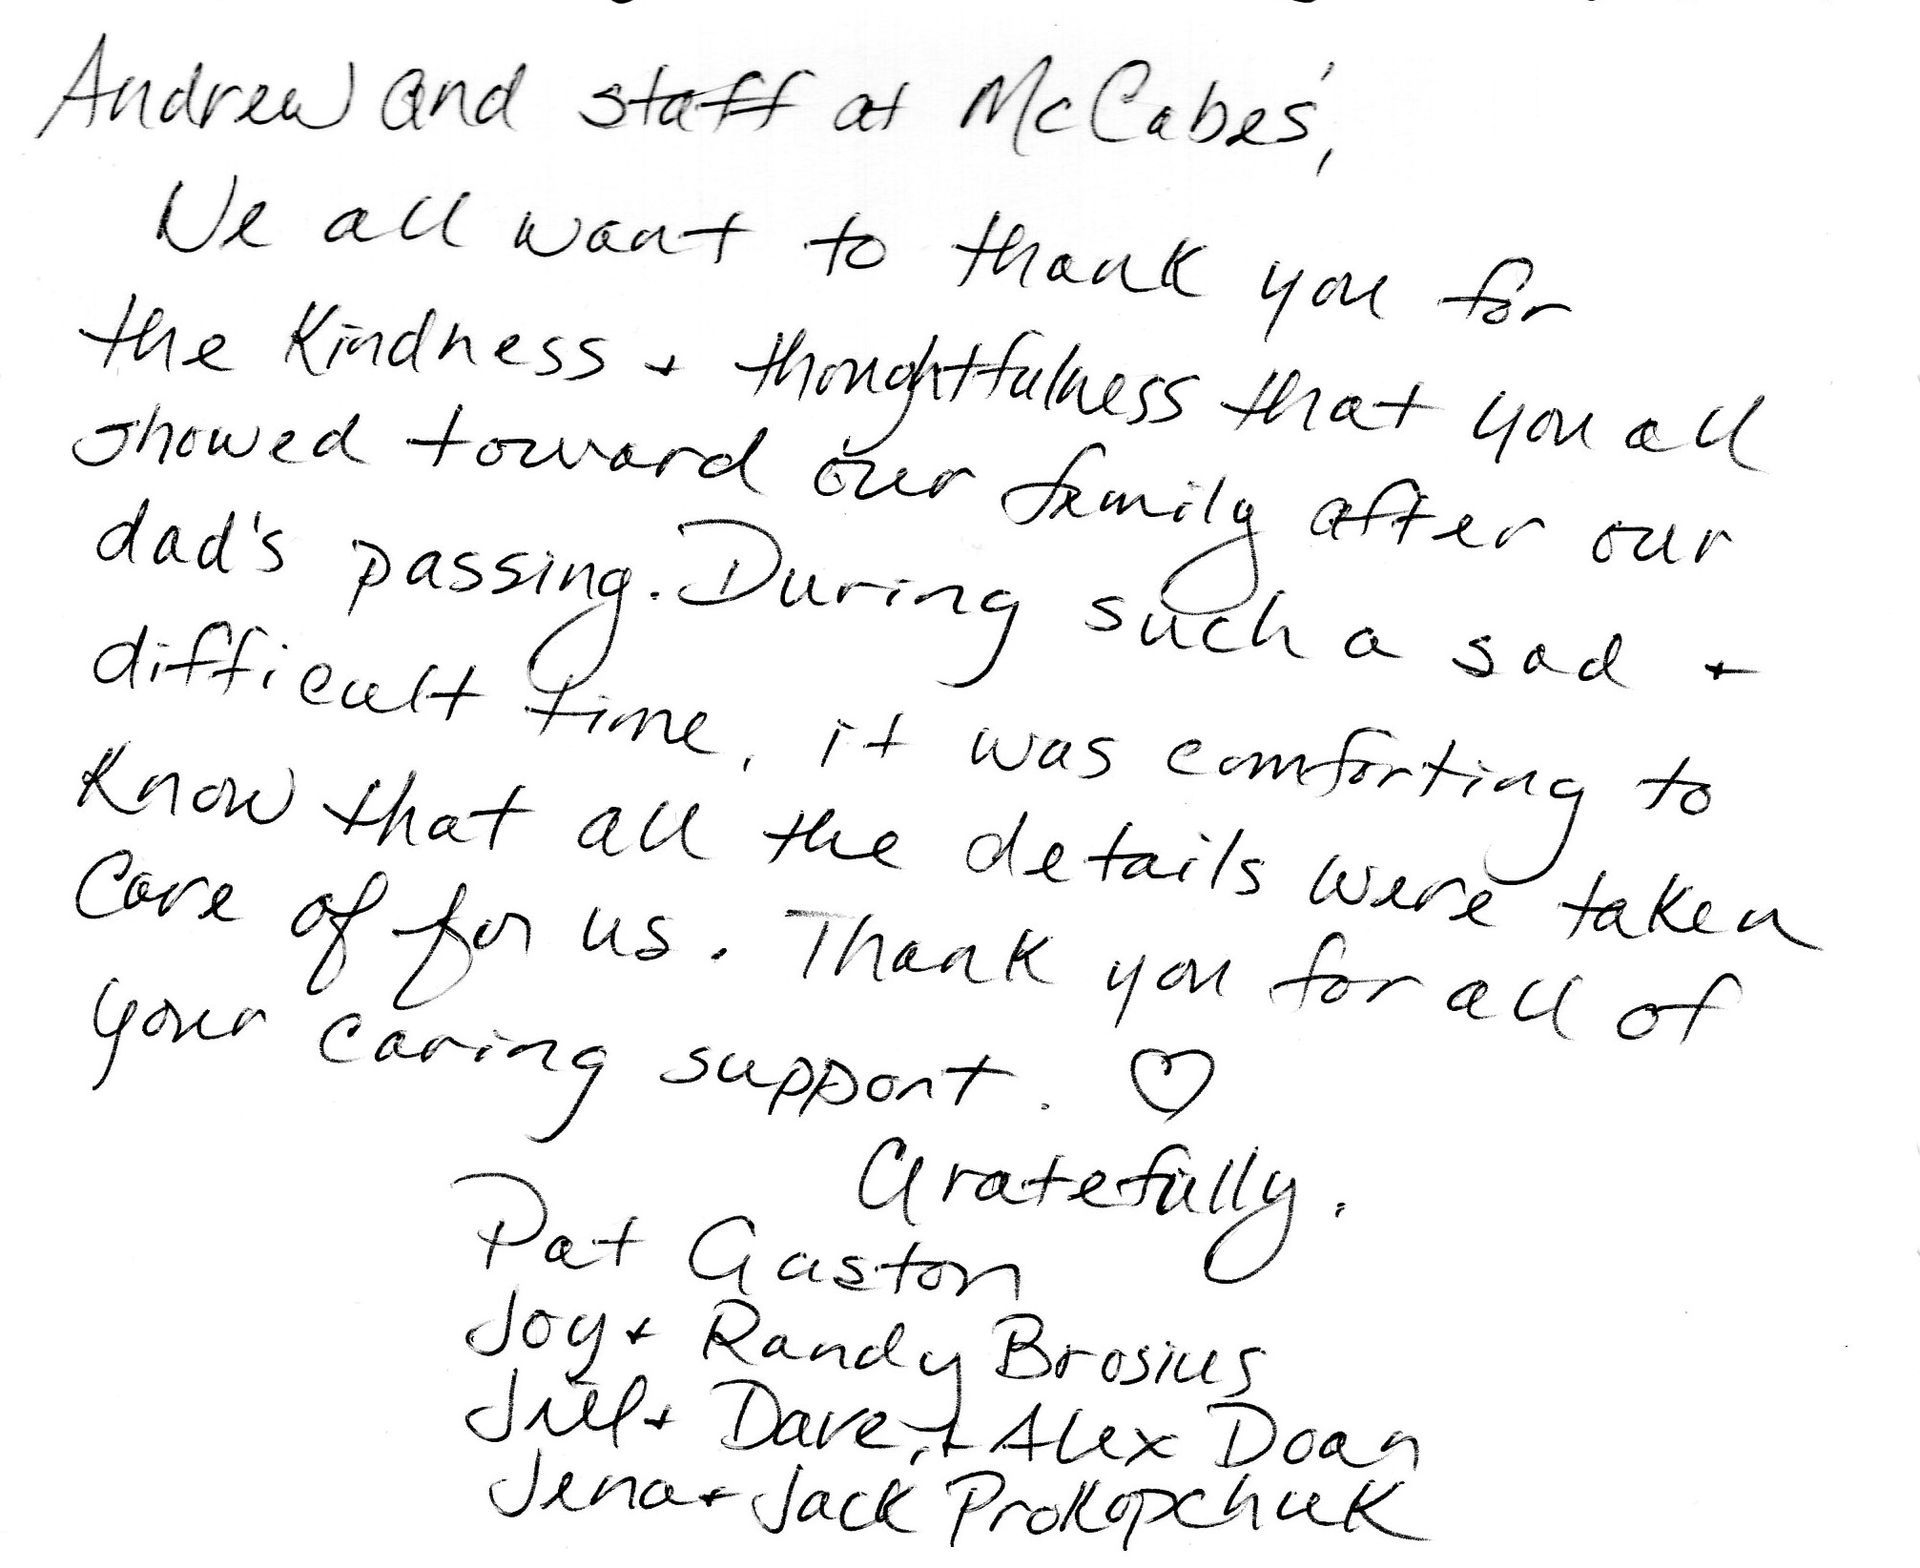 Andrew and staff at McCabes',
We all want to thank you for
the Kindness + thoughtfulness that you all
showed toward our family after our
dad's passing. During such a sad +
difficult time, it was comforting to
Know that all the details were taken
Care of for us. Thank you for all of
your caring support. ♡
Gratefully,
Pat Gaston
Joy + Randy Brosius
Jill + Dave, + Alex Doan
Jena + Jack Prokopchuk